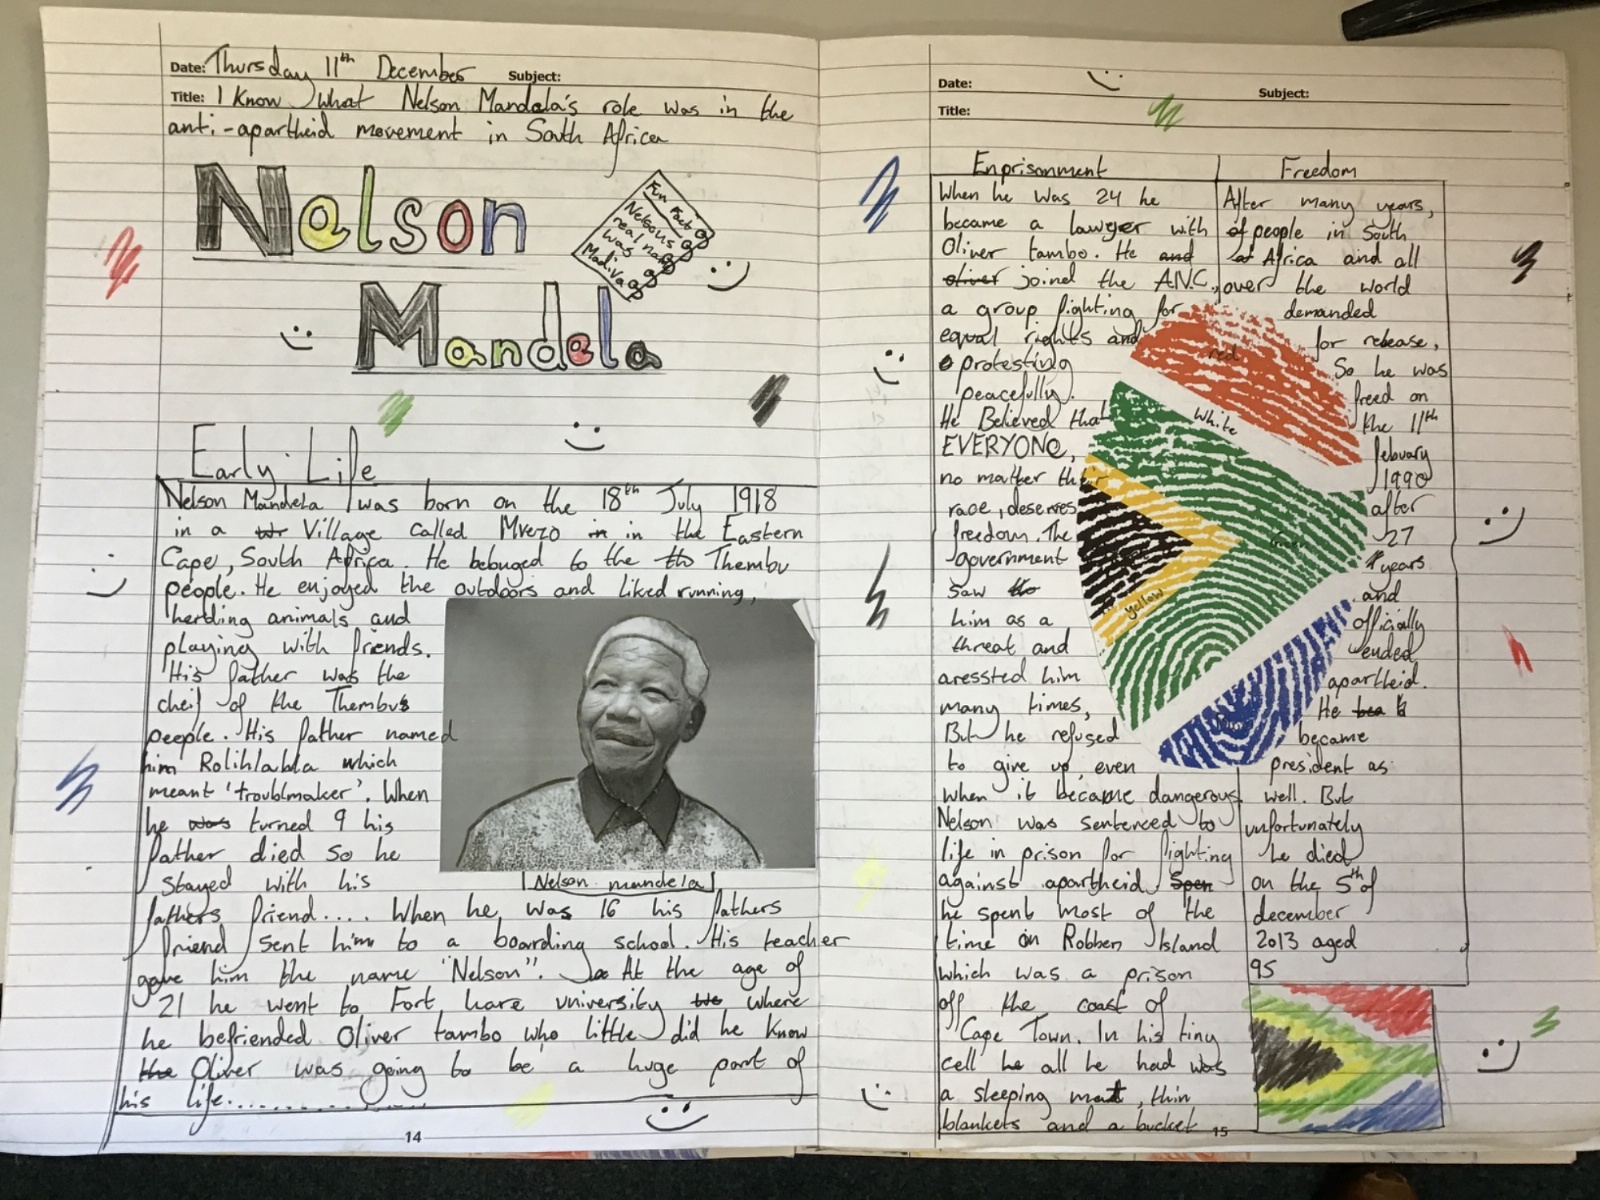 Date: Thursday 11th December Subject:
Title: I Know what Nelson Mandela's role was in the
anti-apartheid movement in South Africa
Nelson
Mandela
Fun Fact
Nelsons
real name
was
Madiva
Early Life
Nelson Mandela was born on the 18th July 1918
in a Village called Mvezo in in the Eastern
Cape, South Africa. He belonged to the the Thembu
people. He enjoyed the outdoors and liked running,
herding animals and
playing with friends.
His father was the
cheif of the Thembus
people. His father named
him Rolihlahla which
meant 'troublmaker'. When
he was turned 9 his
father died so he
stayed with his
fathers friend.... When he was 16 his fathers
friend sent him to a boarding school. His teacher
gave him the name "Nelson". At the age of
21 he went to Fort hare university where
he befriended Oliver tambo who little did he know
the Oliver was going to be a huge part of
his life................
Nelson mandela
14
Date: Subject:
Title:
Enprisonment
When he was 24 he
became a lawyer with
Oliver tambo. He and
oliver joined the A.N.C,
a group fighting for
equal rights and
protesting
peacefully.
He Believed that
EVERYONE,
no matter their
race, deserves
freedom. The
government
saw the
him as a
threat and
aressted him
many times,
But he refused
to give up, even
when it became dangerous
Nelson was sentenced to
life in prison for fighting
against apartheid Spen
he spent most of the
time on Robben Island
which was a prison
off the coast of
Cape Town. In his tiny
cell he all he had was
a sleeping mat, thin
blankets and a bucket
Freedom
After many years,
of people in South
Africa and all
over the world
demanded
for release,
So he was
freed on
the 11th
febuary
1990
after
27
years
and
officially
ended
apartheid.
He
became
president as
well. But
unfortunately
he died
on the 5th of
december
2013 aged
95
red
White
Green
yellow
15